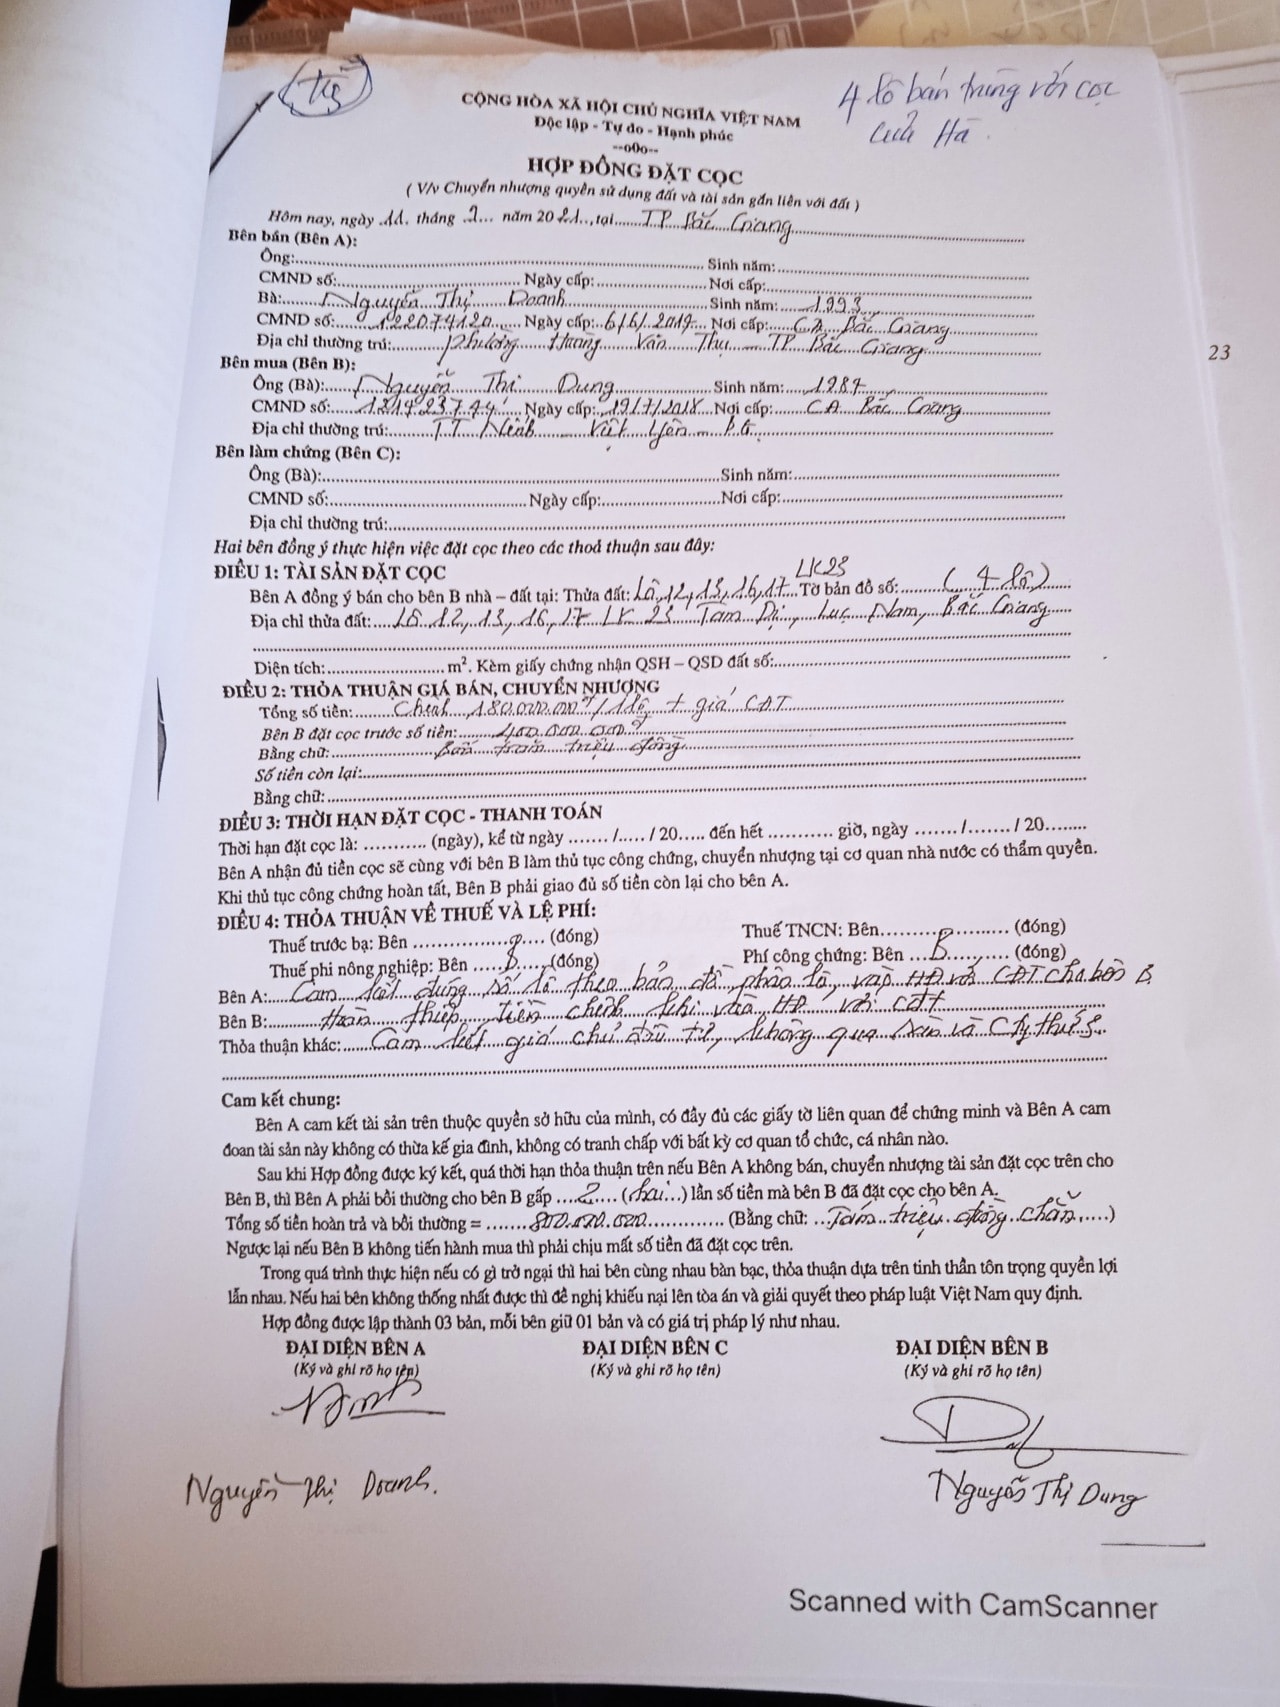 4 lô bán trùng với cọc
của Hà.
CỘNG HÒA XÃ HỘI CHỦ NGHĨA VIỆT NAM
Độc lập - Tự do - Hạnh phúc
--o0o--
HỢP ĐỒNG ĐẶT CỌC
( V/v Chuyển nhượng quyền sử dụng đất và tài sản gắn liền với đất )
Hôm nay, ngày .11. tháng .... năm 2021.., tại......TP Bắc Giang
Bên bán (Bên A):
Ông:........ Sinh năm:........
CMND số:........ Ngày cấp:........ Nơi cấp:........
Bà:.....Nguyễn Thị Doanh Sinh năm: 1993
CMND số: 122074120 Ngày cấp: 6/6/2017 Nơi cấp: CA Bắc Giang
Địa chỉ thường trú: phường Hoàng Văn Thụ - TP Bắc Giang
Bên mua (Bên B):
23
Ông (Bà): Nguyễn Thị Dung Sinh năm: 1987
CMND số: 121423744 Ngày cấp: 19/7/2018 Nơi cấp: CA Bắc Giang
Địa chỉ thường trú: TT Nếnh - Việt Yên - BG
Bên làm chứng (Bên C):
Ông (Bà):........ Sinh năm:........
CMND số:........ Ngày cấp:........ Nơi cấp:........
Địa chỉ thường trú:........
Hai bên đồng ý thực hiện việc đặt cọc theo các thoả thuận sau đây:
ĐIỀU 1: TÀI SẢN ĐẶT CỌC
LK23
Bên A đồng ý bán cho bên B nhà – đất tại: Thửa đất: Lô 12, 13, 16, 17 Tờ bản đồ số: (4 lô)
Địa chỉ thửa đất: Lô 12, 13, 16, 17 LK 23 Tam Dị, Lục Nam, Bắc Giang
Diện tích:........ m². Kèm giấy chứng nhận QSH – QSD đất số:........
ĐIỀU 2: THỎA THUẬN GIÁ BÁN, CHUYỂN NHƯỢNG
Tổng số tiền: Chênh 180.000.000đ/1 lô + giá CĐT
Bên B đặt cọc trước số tiền: 400.000.000đ
Bằng chữ: Bốn trăm triệu đồng
Số tiền còn lại:........
Bằng chữ:........
ĐIỀU 3: THỜI HẠN ĐẶT CỌC - THANH TOÁN
Thời hạn đặt cọc là: ........... (ngày), kể từ ngày ......./...../ 20..... đến hết ........... giờ, ngày ......./......./ 20........
Bên A nhận đủ tiền cọc sẽ cùng với bên B làm thủ tục công chứng, chuyển nhượng tại cơ quan nhà nước có thẩm quyền.
Khi thủ tục công chứng hoàn tất, Bên B phải giao đủ số tiền còn lại cho bên A.
ĐIỀU 4: THỎA THUẬN VỀ THUẾ VÀ LỆ PHÍ:
Thuế trước bạ: Bên ........ (đóng) Thuế TNCN: Bên........ (đóng)
Thuế phi nông nghiệp: Bên .....B..... (đóng) Phí công chứng: Bên ....B..... (đóng)
Bên A: Cam kết đúng số lô theo bản đồ phân lô, vào HĐ với CĐT cho bên B
Bên B: Hoàn thiện tiền chênh khi vào HĐ với CĐT
Thỏa thuận khác: Cam kết giá chủ đầu tư, không qua sàn và Cty thứ 3
Cam kết chung:
Bên A cam kết tài sản trên thuộc quyền sở hữu của mình, có đầy đủ các giấy tờ liên quan để chứng minh và Bên A cam
đoan tài sản này không có thừa kế gia đình, không có tranh chấp với bất kỳ cơ quan tổ chức, cá nhân nào.
Sau khi Hợp đồng được ký kết, quá thời hạn thỏa thuận trên nếu Bên A không bán, chuyển nhượng tài sản đặt cọc trên cho
Bên B, thì Bên A phải bồi thường cho bên B gấp ....2.... (hai...) lần số tiền mà bên B đã đặt cọc cho bên A.
Tổng số tiền hoàn trả và bồi thường = .......800.000.000............ (Bằng chữ: ...Tám triệu đồng chẵn.....)
Ngược lại nếu Bên B không tiến hành mua thì phải chịu mất số tiền đã đặt cọc trên.
Trong quá trình thực hiện nếu có gì trở ngại thì hai bên cùng nhau bàn bạc, thỏa thuận dựa trên tinh thần tôn trọng quyền lợi
lẫn nhau. Nếu hai bên không thống nhất được thì đề nghị khiếu nại lên tòa án và giải quyết theo pháp luật Việt Nam quy định.
Hợp đồng được lập thành 03 bản, mỗi bên giữ 01 bản và có giá trị pháp lý như nhau.
ĐẠI DIỆN BÊN A ĐẠI DIỆN BÊN C ĐẠI DIỆN BÊN B
(Ký và ghi rõ họ tên) (Ký và ghi rõ họ tên) (Ký và ghi rõ họ tên)
Nguyễn Thị Doanh. Nguyễn Thị Dung
Scanned with CamScanner